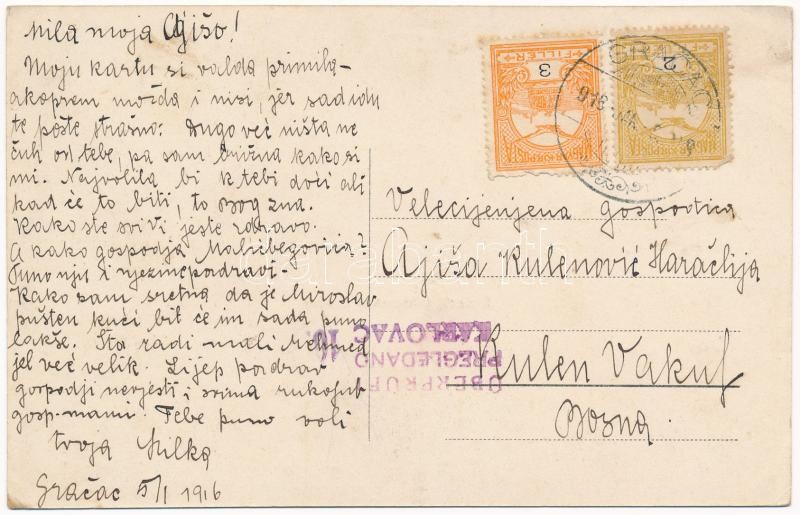 Mila moja Ajišo!
Moju kartu si valda primila-
akoprem možda i nisi, jer sad idu
te pošte strašno. Dugo već ništa ne
čuh od tebe, pa sam brižna kako si
mi. Najvolila bi k tebi doći ali
kad će to biti, to Bog zna.
Kako ste svi vi, jeste zdravo.
A kako gospodja Mališbegovica?
Puno nju i njezine pozdravi-
Kako sam sretna da je Miroslav
pušten kući bit će im sada puno
lakše. Šta radi mali Mehmed
jel već velik. Lijep pozdrav
gospodji nevjesti i svima rukoljub
gosp. mami. Tebe puno voli
tvoja Milka
Gračac 5/1 1916
FILLER
3
2
MAGYAR KIR. POSTA
GRAČAC
916
Velecijenjena gospodjica
Ajiša Kulenović Haračlija
Kulen Vakuf
Bosna
ÜBERPRÜFT
PREGLEDANO
KARLOVAC 16.
darabanth